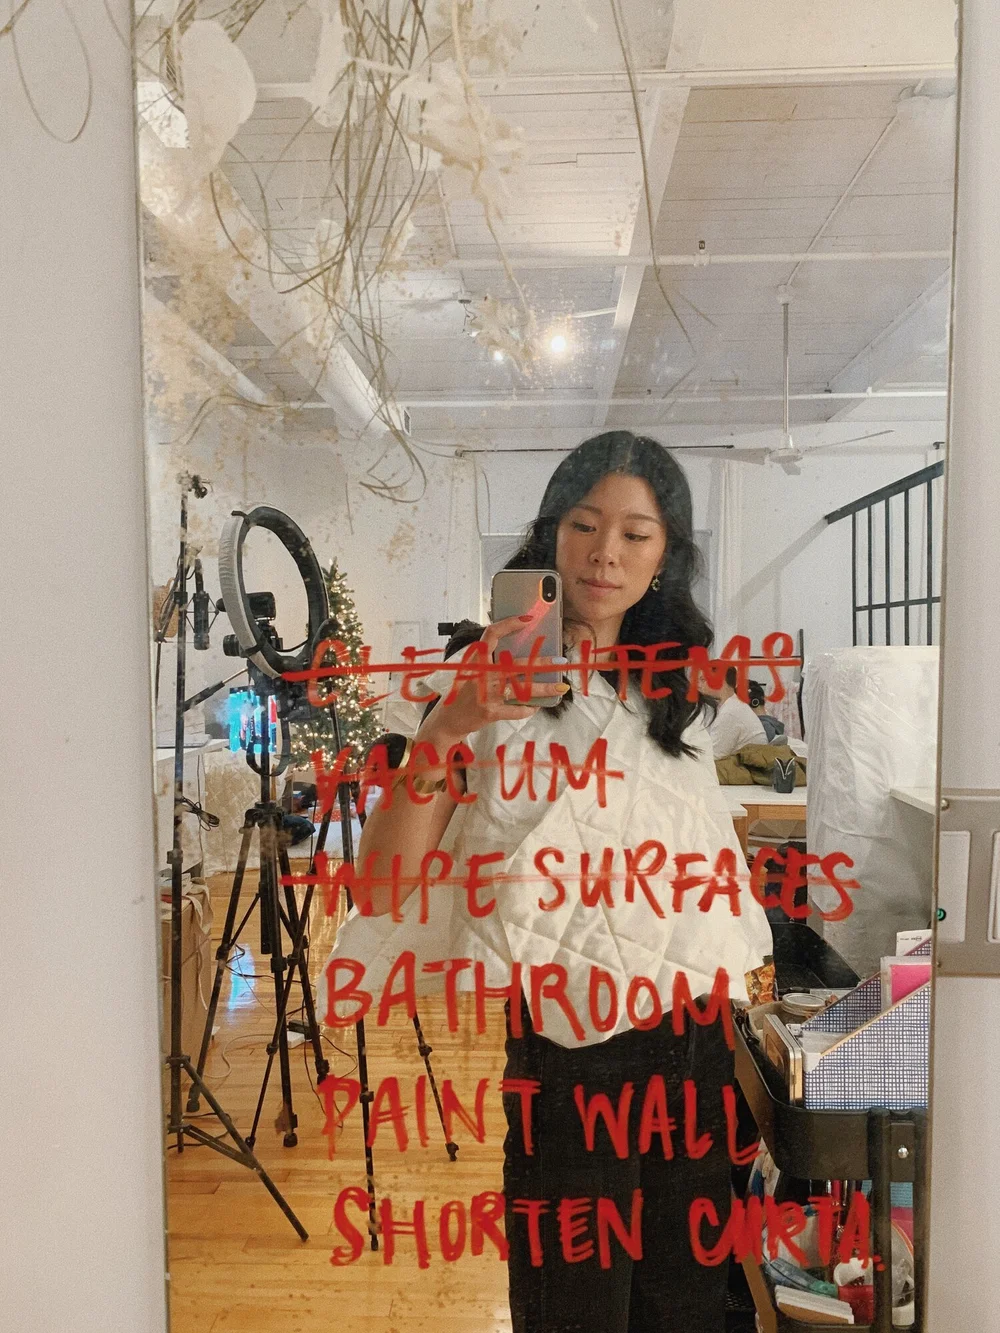 CLEAN ITEMS
VACCUM
WIPE SURFACES
BATHROOM
PAINT WALL
SHORTEN CURTA.